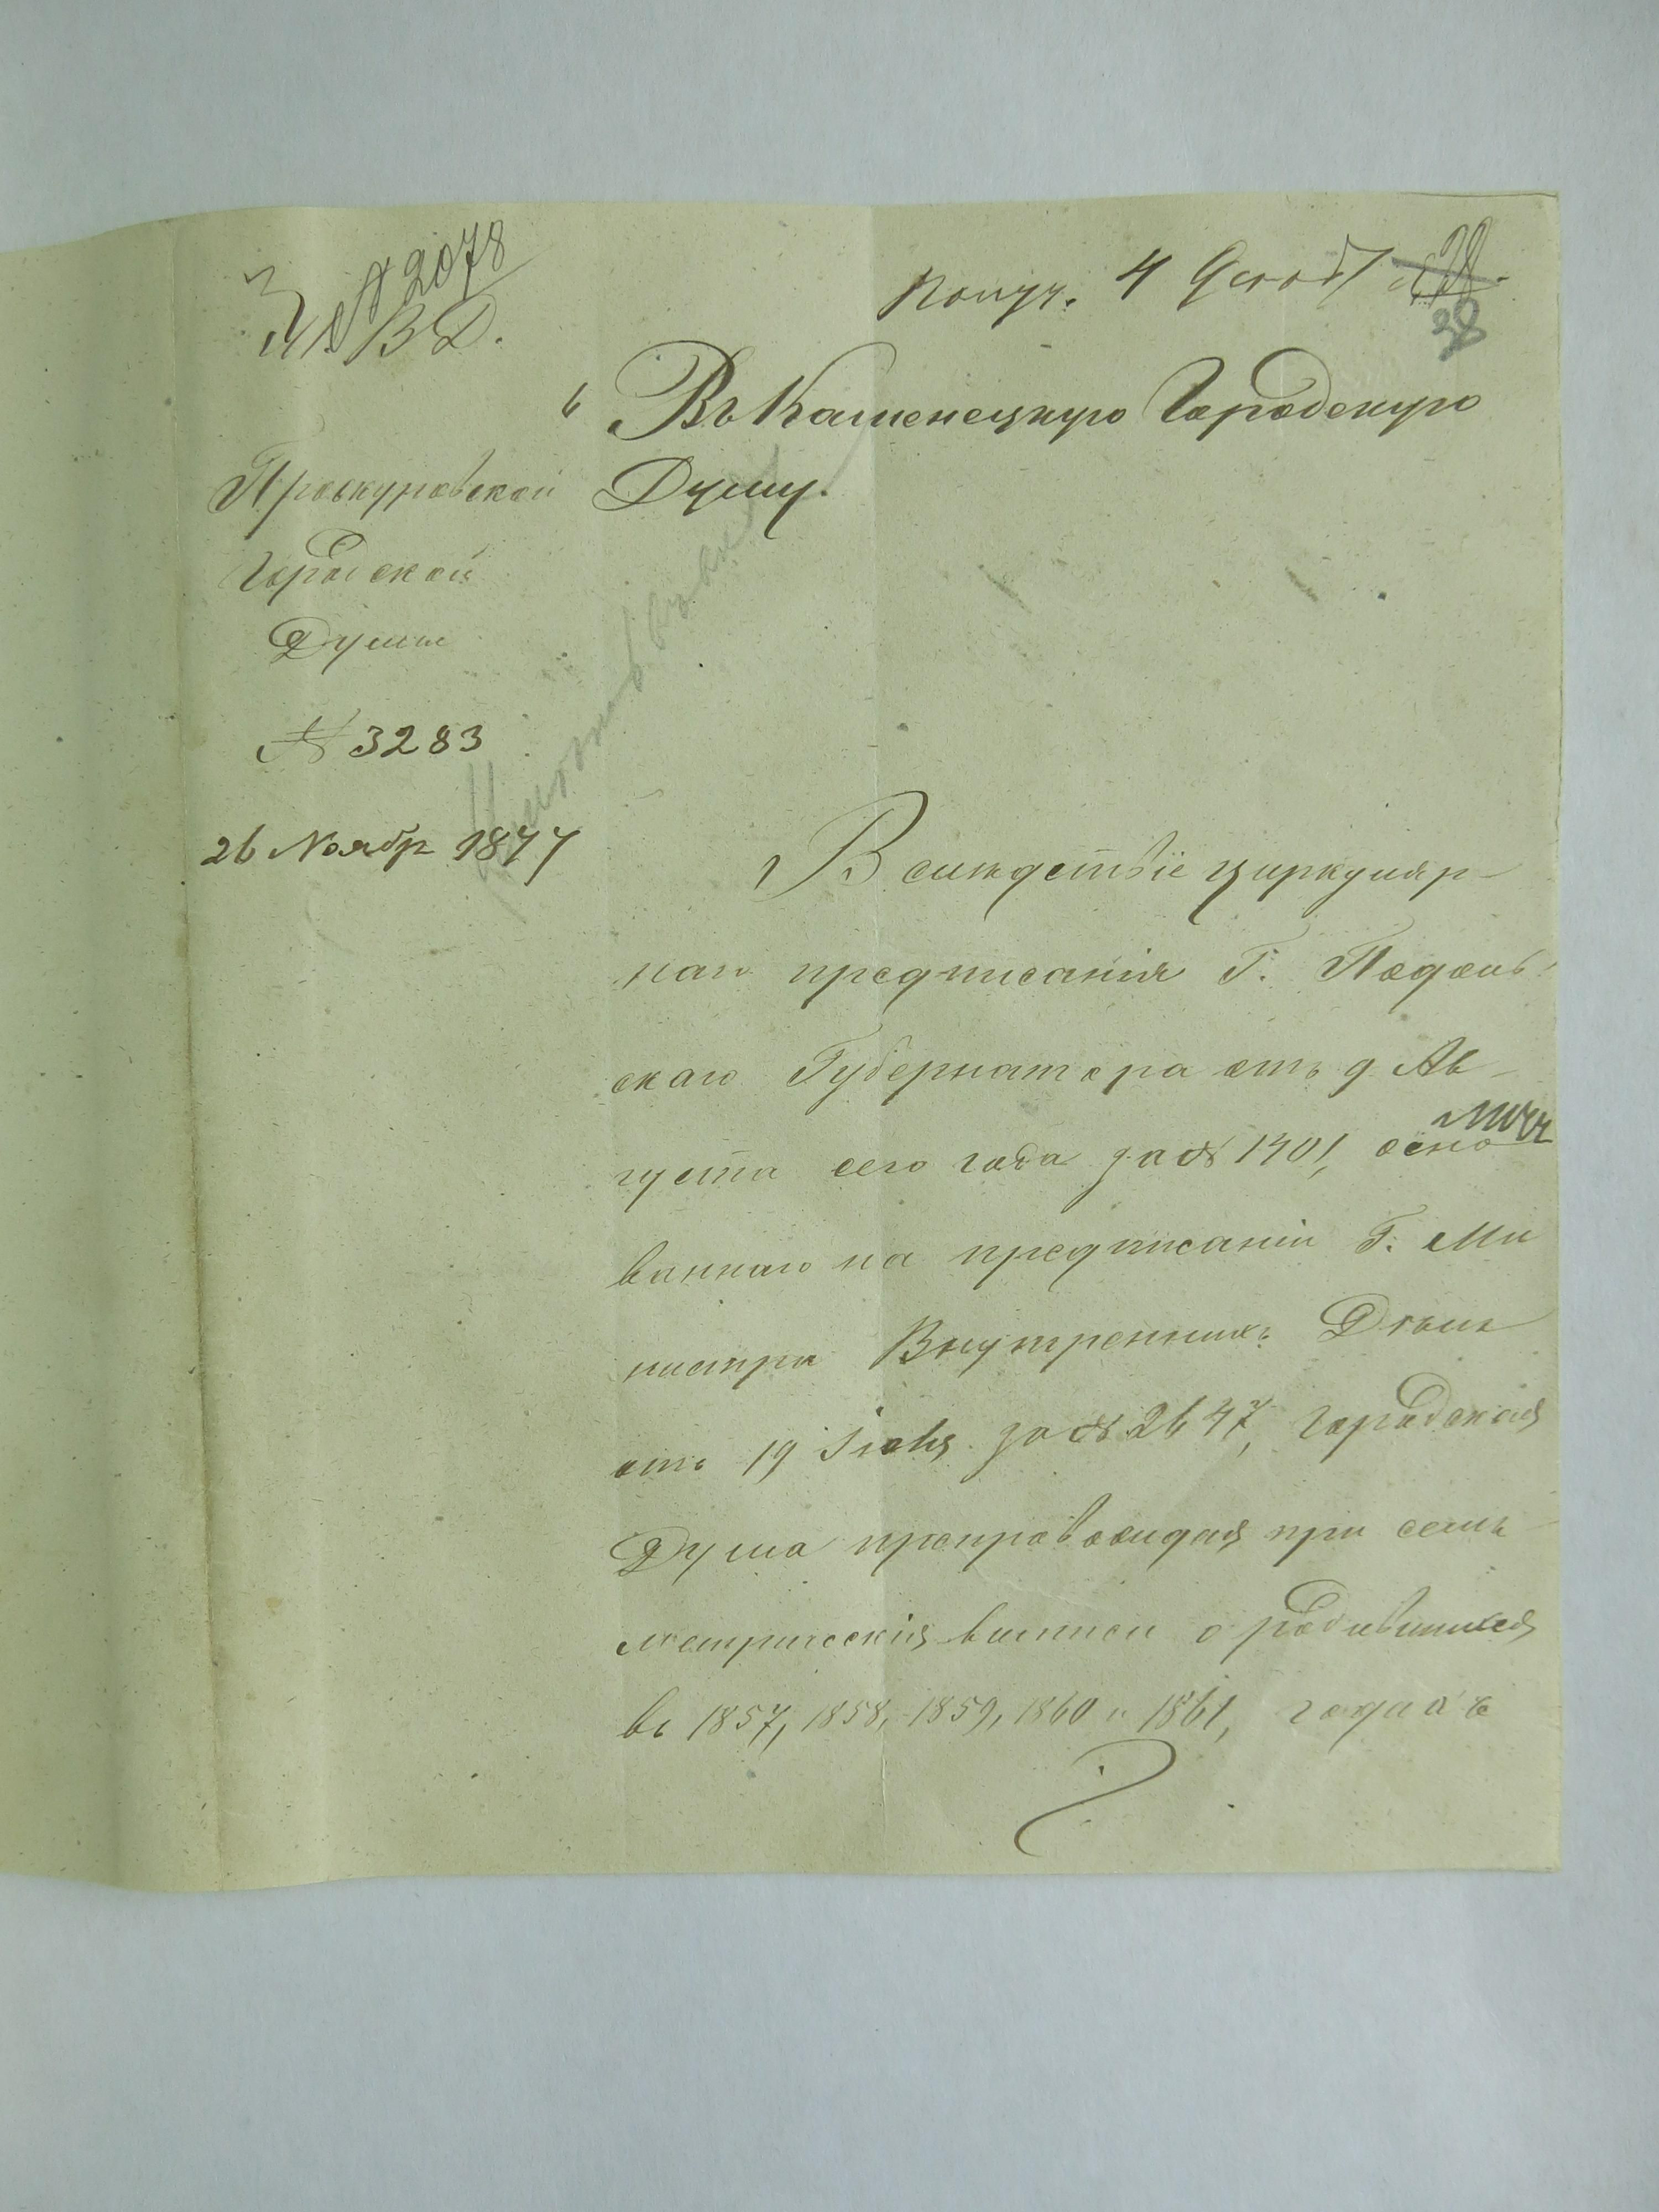 № 2078
В Д.
Получ. 4 Декаб
38
Въ Каменецкую Городскую
Думу.
Проскуровской
Городской
Думы
№ 3283
26 Ноябр 1877
Вслѣдствіе циркуляр-
наго предписанія Г. Подоль-
скаго Губернатора отъ 9 Ав-
густа сего года за № 1401, осно
ваннаго на предписаніи Г. Ми
нистра Внутреннихъ Дѣлъ
отъ 19 за № 2647, Городская
Дума препровождая при семъ
метрическія выписи о родившихся
въ 1857, 1858, 1859, 1860 и 1861, годахъ